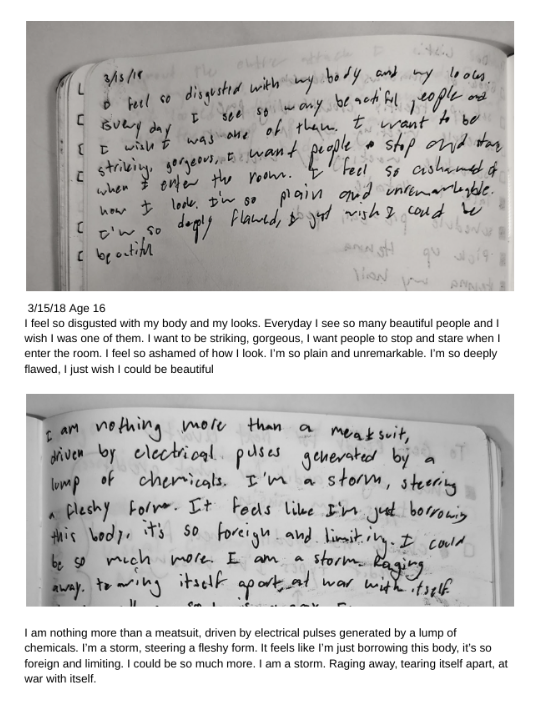 3/15/18
I feel so disgusted with my body and my looks.
Every day I see so many beautiful people and
I wish I was one of them. I want to be
striking, gorgeous, I want people to stop and stare
when I enter the room. I feel so ashamed of
how I look. I'm so plain and unremarkable.
I'm so deeply flawed, I just wish I could be
beautiful
3/15/18 Age 16
I feel so disgusted with my body and my looks. Everyday I see so many beautiful people and I
wish I was one of them. I want to be striking, gorgeous, I want people to stop and stare when I
enter the room. I feel so ashamed of how I look. I'm so plain and unremarkable. I'm so deeply
flawed, I just wish I could be beautiful
I am nothing more than a meatsuit,
driven by electrical pulses generated by a
lump of chemicals. I'm a storm, steering
a fleshy form. It feels like I'm just borrowing
this body, it's so foreign and limiting. I could
be so much more. I am a storm. Raging
away. tearing itself apart, at war with itself.
I am nothing more than a meatsuit, driven by electrical pulses generated by a lump of
chemicals. I'm a storm, steering a fleshy form. It feels like I'm just borrowing this body, it's so
foreign and limiting. I could be so much more. I am a storm. Raging away, tearing itself apart, at
war with itself.